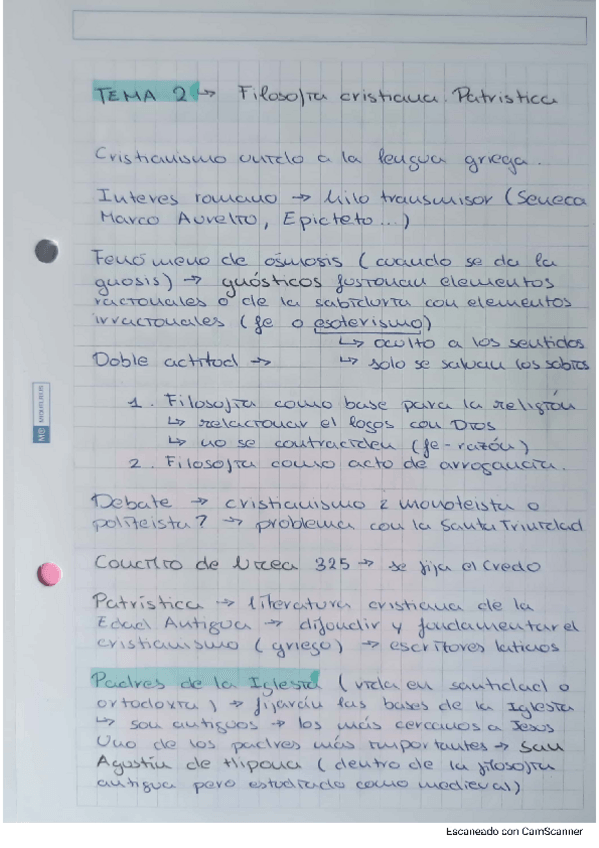 TEMA 2 → Filosofia cristiana. Patristica
Cristianismo unido a la lengua griega.
Interes romano → hilo transmisor (Seneca
Marco Aurelio, Epicteto...)
Fenómeno de osmosis (cuando se da la
gnosis) → gnósticos fusionan elementos
racionales o de la sabiduria con elementos
irracionales (fe o esoterismo)
↳ oculto a los sentidos
Doble actitud → ↳ solo se salvan los sabios
1. Filosofia como base para la religión
↳ relacionar el logos con Dios
↳ no se contraciden (fe-razón)
2. Filosofia como acto de arrogancia.
Debate → cristianismo ¿ monoteista o
politeista? → problema con la Santa Trinidad
Concilio de Nicea 325 → se fija el credo
Patrística → literatura cristiana de la
Edad Antigua → difundir y fundamentar el
cristianismo (griego) → escritores latinos
Padres de la Iglesia (vida en santidad o
ortodoxia) → fijarán las bases de la Iglesia
↳ son antiguos → los más cercanos a Jesus
Uno de los padres más importantes → San
Agustin de Hipona (dentro de la filosofia
antigua pero estudiado como medieval)
MIQUELRIUS
Escaneado con CamScanner